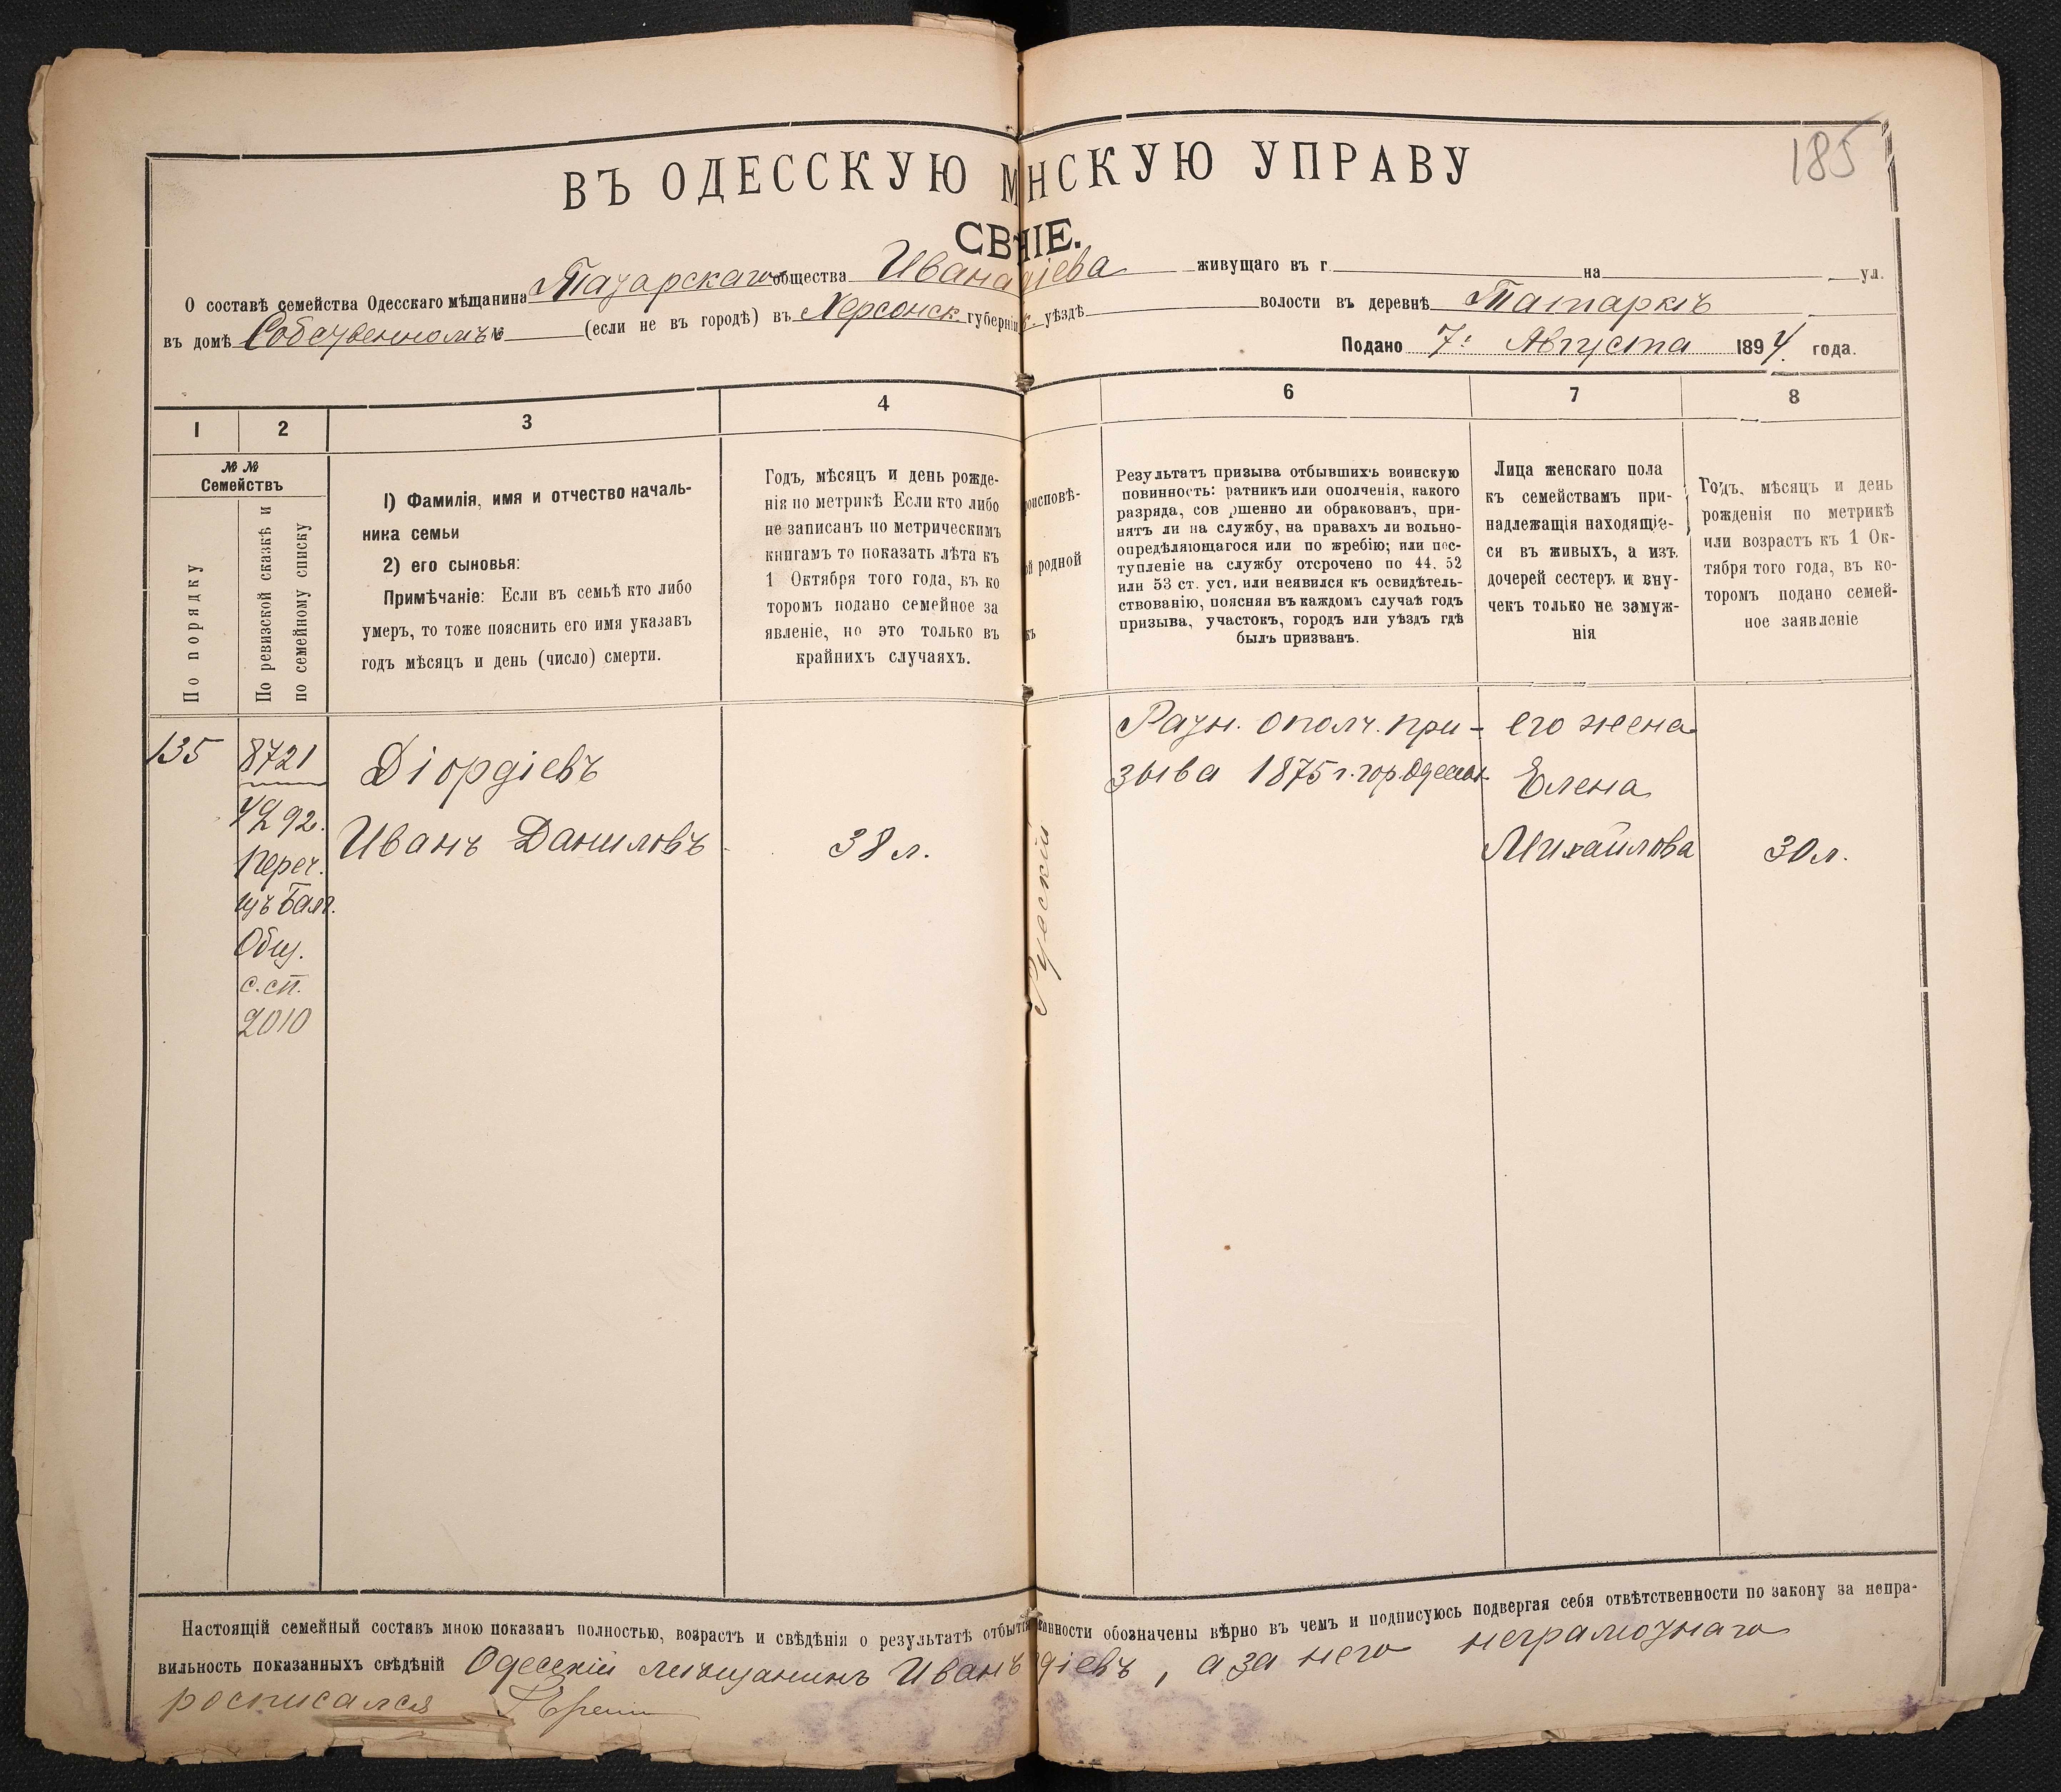 185
ВЪ ОДЕССКУЮ М НСКУЮ УПРАВУ
СВ НІЕ.
О составѣ семейства Одесскаго мѣщанина Татарскаго общества Ивана діева живущаго въ г на ул.
въ домѣ Собственномъ № (если не въ городѣ) въ Херсонск губерніи уѣздѣ волости въ деревнѣ Татаркѣ
Подано 7 Августа 1894 года.
1 2 3 4 6 7 8
№№ Семействъ
По порядку
По ревизской сказкѣ и по семейному списку
1) Фамилія, имя и отчество началь-
ника семьи
2) его сыновья:
Примѣчаніе: Если въ семьѣ кто либо
умеръ, то тоже пояснить его имя указавъ
годъ мѣсяцъ и день (число) смерти.
Годъ, мѣсяцъ и день рожде-
нія по метрикѣ Если кто либо
не записанъ по метрическимъ
книгамъ то показать лѣта къ
1 Октября того года, въ ко
торомъ подано семейное за
явленіе, но это только въ
крайнихъ случаяхъ.
оисповѣ-
й родной
Результатъ призыва отбывшихъ воинскую
повинность: ратникъ или ополченія, какого
разряда, сов ршенно ли обракованъ, при-
нятъ ли на службу, на правахъ ли вольно-
опредѣляющагося или по жребію; или пос-
тупленіе на службу отсрочено по 44. 52
или 53 ст. уст. или неявился къ освидѣтель-
ствованію, поясняя въ каждомъ случаѣ годъ
призыва, участокъ, городъ или уѣздъ гдѣ
былъ призванъ.
Лица женскаго пола
къ семействамъ при-
надлежащія находящіе-
ся въ живыхъ, а изъ
дочерей сестеръ и вну-
чекъ только не замуж-
нія
Годъ, мѣсяцъ и день
рожденія по метрикѣ
или возрастъ къ 1 Ок-
тября того года, въ ко-
торомъ подано семей-
ное заявленіе
135 8721 Діордіевъ
Иванъ Даниловъ 38 л.
92.
Переч.
изъ Балт.
Общ.
с.сп.
2010
Русскій
Ратн. ополч. при-
зыва 1875 г. гор. Одессы.
его жена
Елена
Михайлова 30 л.
Настоящій семейный составъ мною показанъ полностью, возрастъ и свѣдѣнія о результатѣ отбытія анности обозначены вѣрно въ чемъ и подписуюсь подвергая себя отвѣтственности по закону за непра-
вильность показанныхъ свѣдѣній Одесскій мѣщанинъ Иванъ діевъ, а за него неграмотнаго
росписался